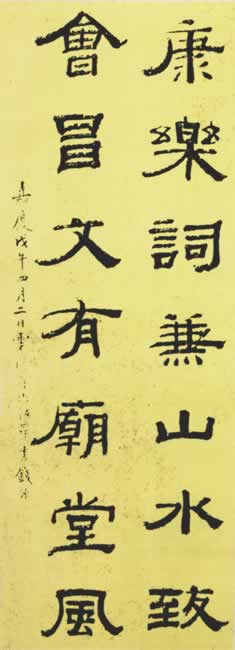 康樂詞兼山水致
會昌文有廟堂風
嘉慶戊午四月二日
書錢